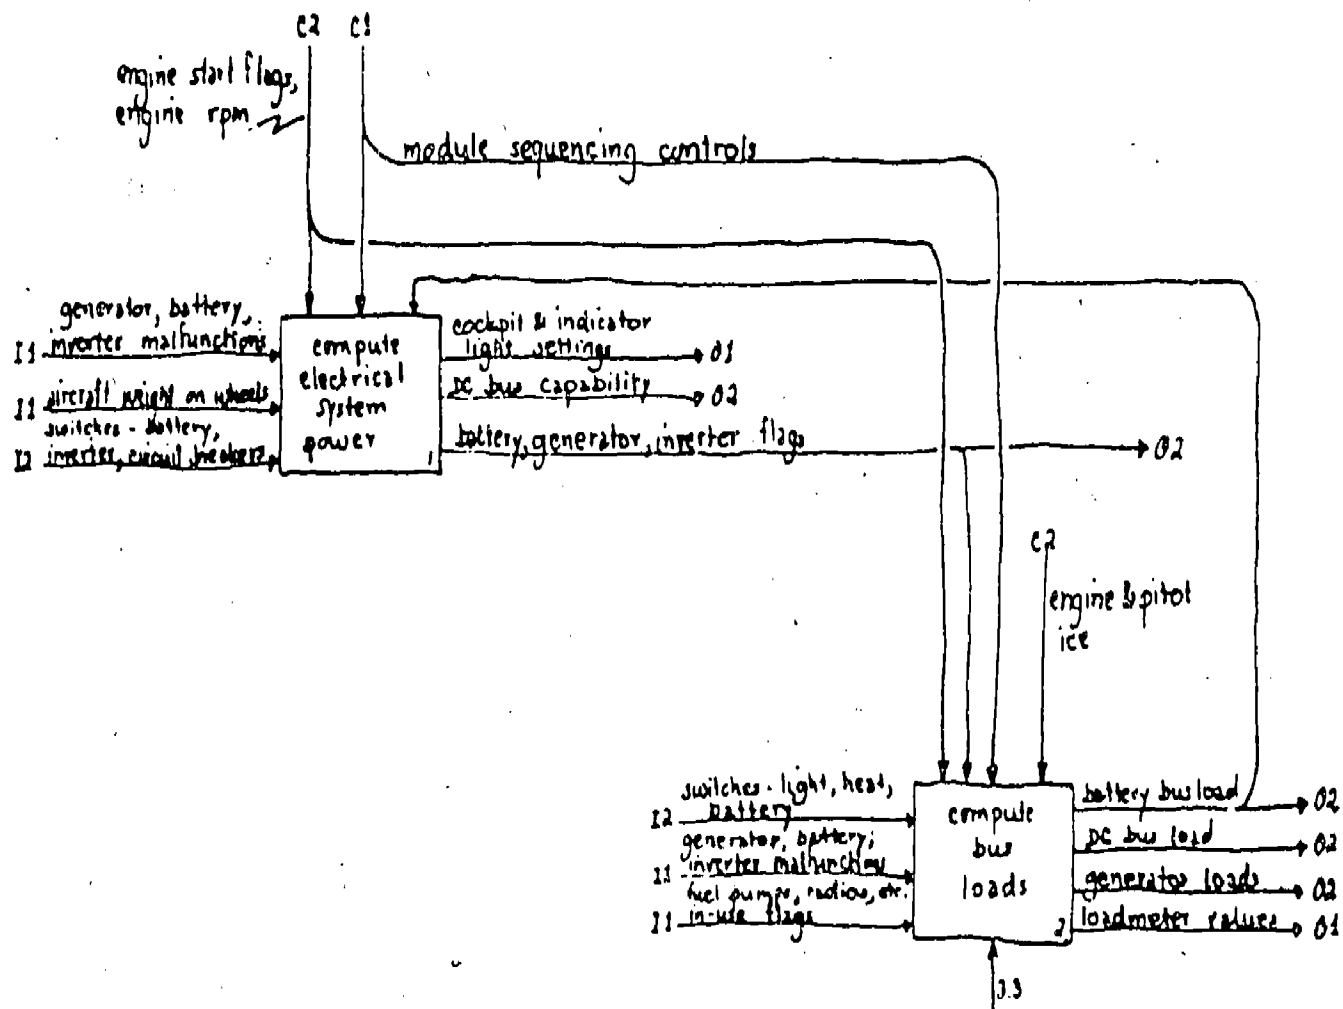 C2 C1
engine start flags,
engine rpm
module sequencing controls
generator, battery,
I1 inverter malfunctions
I1 aircraft weight on wheels
switches - battery,
I2 inverter, circuit breakers
compute
electrical
system
power
1
cockpit & indicator
light settings O1
DC bus capability O2
battery, generator, inverter flags O2
C2
engine & pitot
ice
switches - light, heat,
I2 battery
generator, battery,
I1 inverter malfunctions
fuel pumps, radios, etc.
I1 in-use flags
compute
bus
loads
2
battery bus load O2
DC bus load O2
generator loads O2
loadmeter values O1